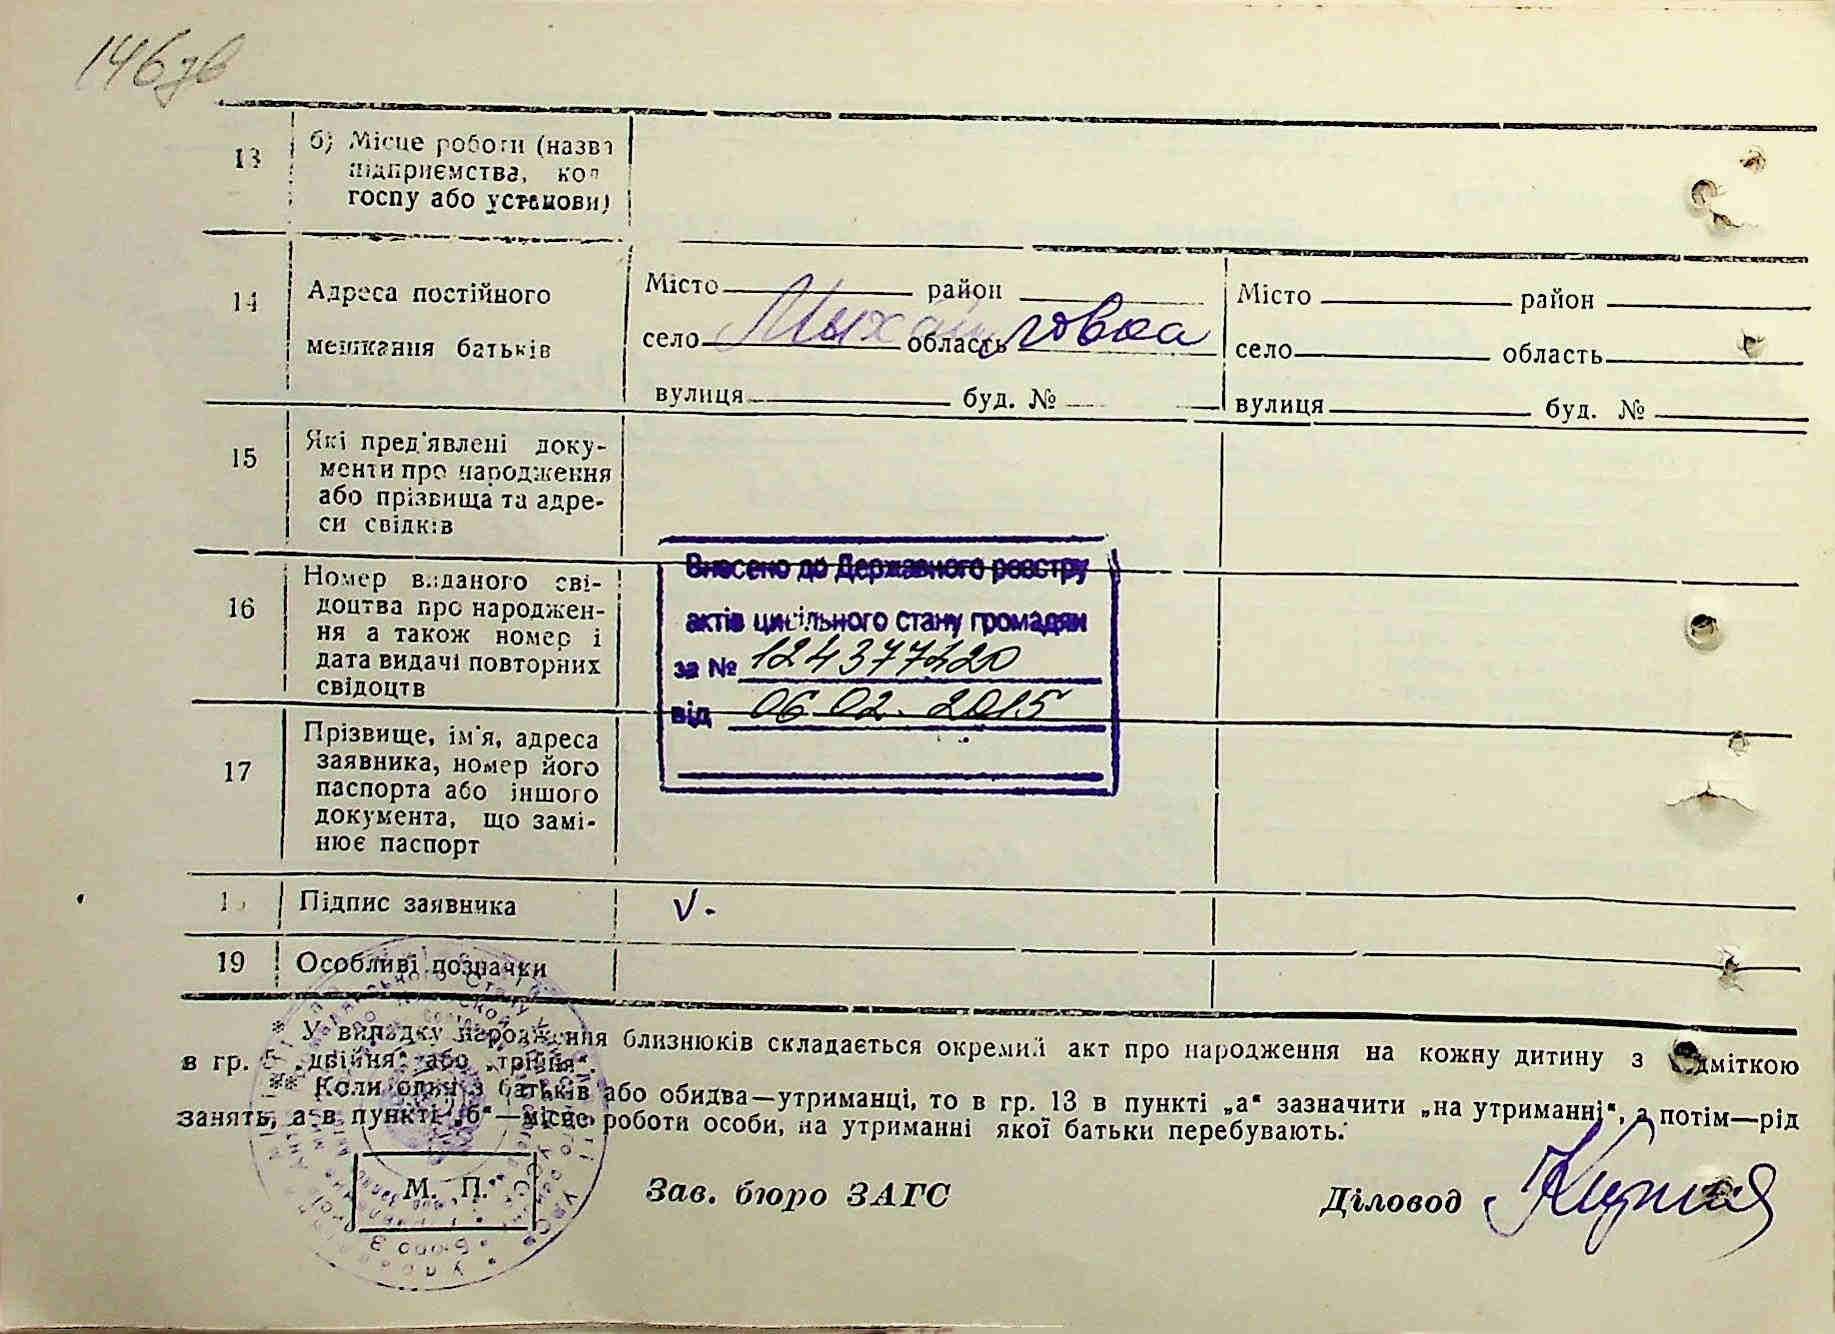 146зв
13
б) Місце роботи (назва
підприємства, кол
госпу або установи)
14
Адреса постійного
мешкання батьків
Місто район
село Мыхайловка область
вулиця буд. №
Місто район
село область
вулиця буд. №
15
Які пред'явлені доку-
менти про народження
або прізвища та адре-
си свідків
16
Номер виданого сві-
доцтва про народжен-
ня а також номер і
дата видачі повторних
свідоцтв
Внесено до Державного реєстру
актів цивільного стану громадян
за №
від 06.02.2015
17
Прізвище, ім'я, адреса
заявника, номер його
паспорта або іншого
документа, що замі-
нює паспорт
Підпис заявника
V.
19
Особливі позначки
У випадку народження близнюків складається окремий акт про народження на кожну дитину з відміткою
в гр. „двійня“ або „трійня“.
Коли один з батьків або обидва—утриманці, то в гр. 13 в пункті „а“ зазначити „на утриманні“, а потім—рід
занять, а в пункті „б“—місце роботи особи, на утриманні якої батьки перебувають.
М. П.
Зав. бюро ЗАГС
Діловод